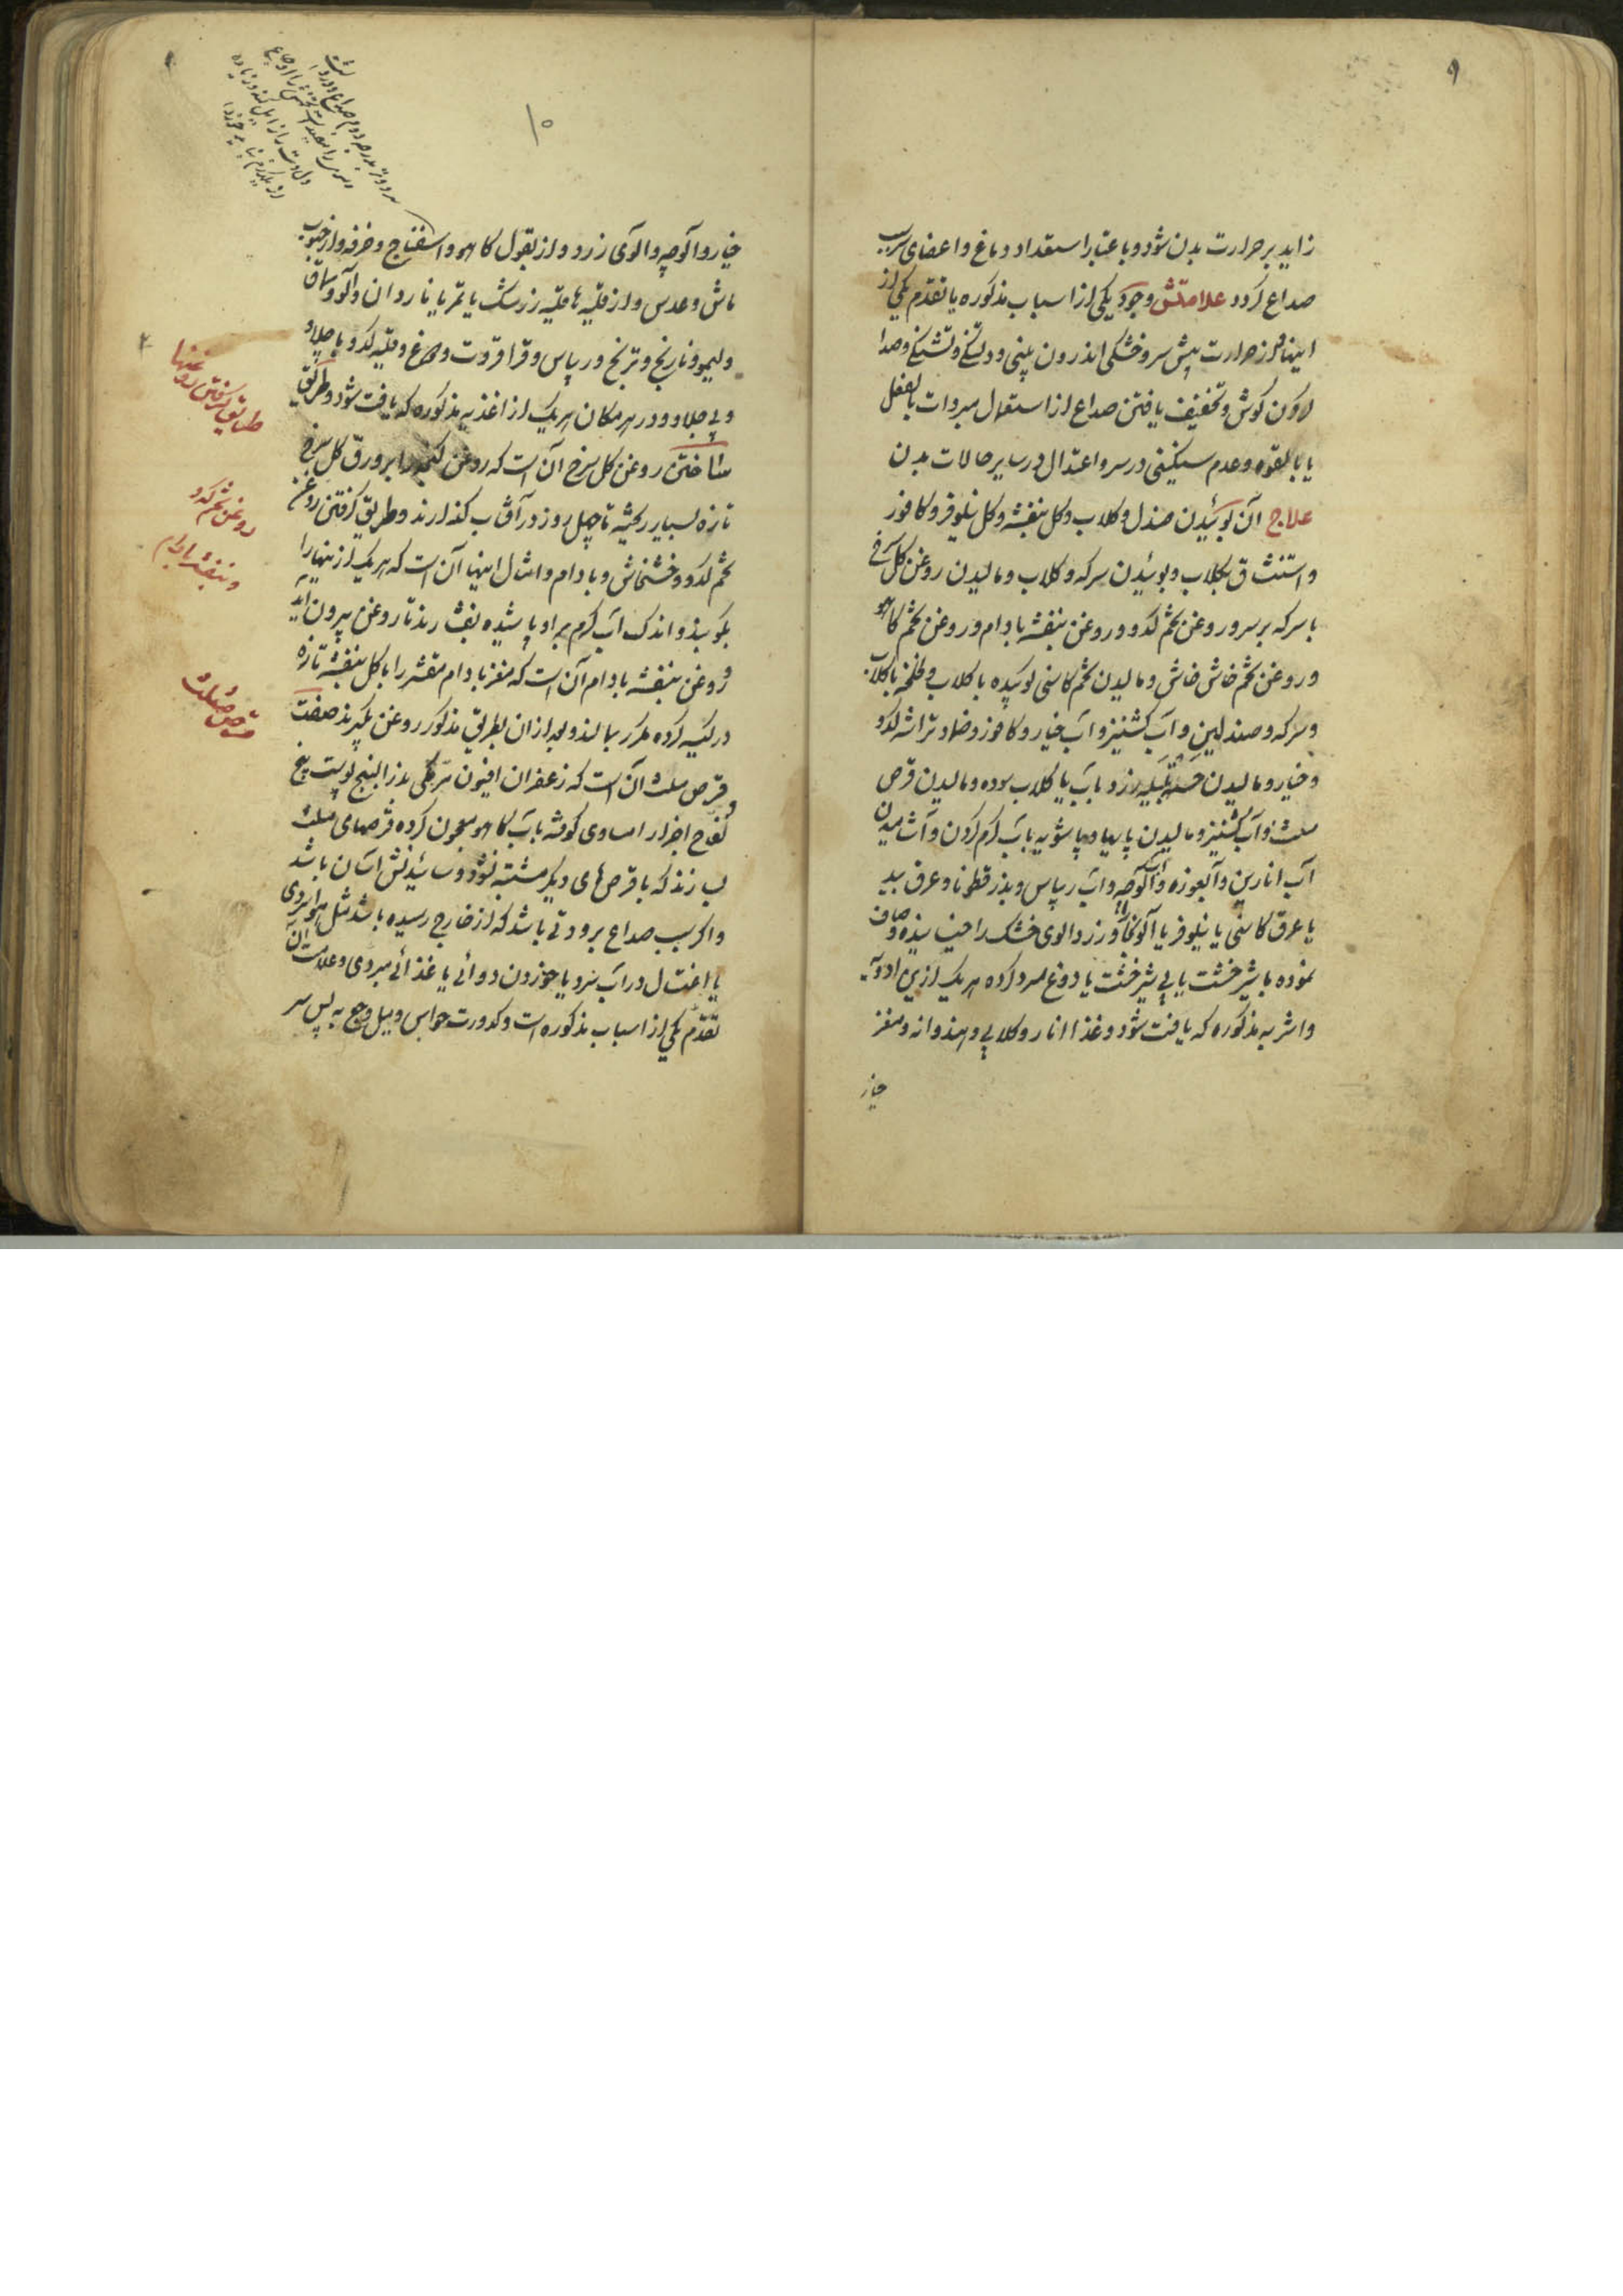 ۹
زاید بر حرارت بدن شود و باعتبار استعداد دماغ و اعضای سر سبب
صداع گردد علامتش وجود یکی از اسباب مذکوره یا تقدم یکی از
اینها و از حرارت پیش سر و خشکی اندرون بینی و دلتنگی و تشنگی و صدا
کردن گوش و تخفیف یافتن صداع از استعمال مبردات بالفعل
یا بالقوه و عدم سنگینی در سر و اعتدال در سایر حالات بدن
علاج آن بوئیدن صندل و کلاب و کل بنفشه و کل نیلوفر و کافور
و استنشاق بکلاب و بوئیدن سرکه و کلاب و مالیدن روغن کل سرخ
با سرکه بر سر و روغن تخم کدو و روغن بنفشه بادام و روغن تخم کاهو
و روغن تخم خاش خاش و مالیدن تخم کاسنی کوبیده با کلاب و لخلخه با کلاب
و سرکه و صندلین و آب کشنیز و آب خیار و کافور و ضماد تراشه کدو
و خیار و مالیدن هلیله زرد بآب یا کلاب سوده و مالیدن قرص
مثلث و آب کشنیز و مالیدن پایها و پاشویه بآب کرم کردن و آشامیدن
آب انارین و آبغوره و آب آلوچه و آب ریباس و بذر قطونا و عرق بید
یا عرق کاسنی یا نیلوفر یا آلو بخارا و زردالوی خشک را خیسانیده و صاف
نموده با شیرخشت یا بی شیرخشت یا دوغ سرد کرده هر یک ازین ادویه
و اشربه مذکوره که یافت شود و غذا انار و کلابی و هندوانه و مغز
خیار
۱۰
خیار و آلوچه و الوی زرد و از بقول کاهو و اسفناج و خرفه و از حبوب
ماش و عدس و از قلیه‌ها قلیه زرشک یا تمر یا ناردان و آلو و سماق
و لیمو و نارنج و ترنج و ریباس و قراقروت و مرغ و قلیه کدو با چلاو
و بی چلاو و در هر مکان هر یک از اغذیه مذکوره که یافت شود و طریق
ساختن روغن کل سرخ آن است که روغن کنجد را بر ورق کل سرخ
تازه بسیار ریخته تا چهل روز در آفتاب کذارند و طریق کرفتن روغن
تخم کدو و خشخاش و بادام و امثال اینها آن است که هر یک از ینها را
بکوبند و اندک آب کرم بر او پاشیده بفشارند تا روغن بیرون آید
و روغن بنفشه بادام آن است که مغز بادام مقشر را با کل بنفشه تازه
در کیسه کرده مکرر بمالند و بعد از ان بطریق مذکور روغن بگیرند صفت
قرص مثلث آن است که زعفران افیون مر مکی بذر البنج پوست بیخ
لفاح اجزا را مساوی کوفته بآب کاهو معجون کرده قرصهای مثلث
بسازند که با قرص‌های دیگر مشتبه نشود و سائیدنش آسان باشد
و اکر سبب صداع برودتی باشد که از خارج رسیده باشد مثل هوای سردی
یا اغتسال در آب سرد یا خوردن دوائی یا غذائی مبردی و علامت آن
تقدم یکی از اسباب مذکوره است و کدورت حواس و میل وجع به پس سر
طریق کرفتن روغنها
روغن تخم کدو
و بنفشه بادام
قرص مثلث